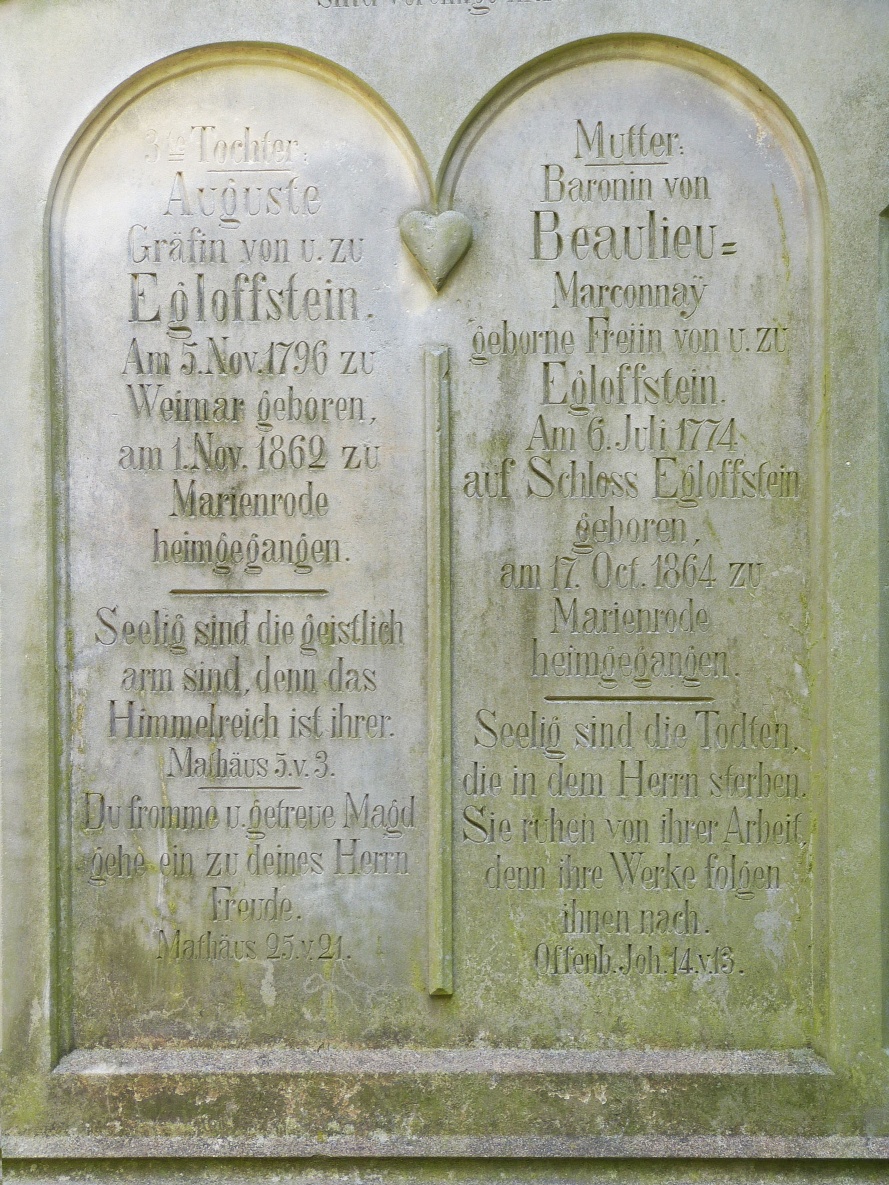 3te Tochter:
Auguste
Gräfin von u. zu
Egloffstein.
Am 5. Nov. 1796 zu
Weimar geboren,
am 1. Nov. 1862 zu
Marienrode
heimgegangen.
Seelig sind die geistlich
arm sind, denn das
Himmelreich ist ihrer.
Mathäus 5. v. 3.
Du fromme u. getreue Magd
gehe ein zu deines Herrn
Freude.
Mathäus 25. v. 21.
Mutter:
Baronin von
Beaulieu=
Marconnaÿ
geborne Freiin von u. zu
Egloffstein.
Am 6. Juli 1774
auf Schloss Egloffstein
geboren,
am 17. Oct. 1864 zu
Marienrode
heimgegangen.
Seelig sind die Todten,
die in dem Herrn sterben.
Sie ruhen von ihrer Arbeit,
denn ihre Werke folgen
ihnen nach.
Offenb. Joh. 14. v. 13.